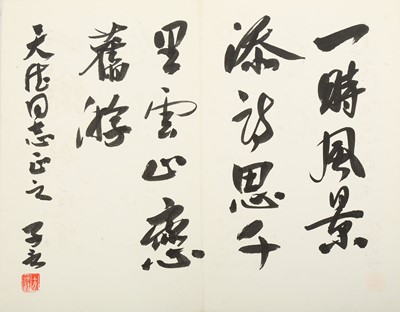 一時風景
添詩思千
里雲山戀
舊游
天德同志正之